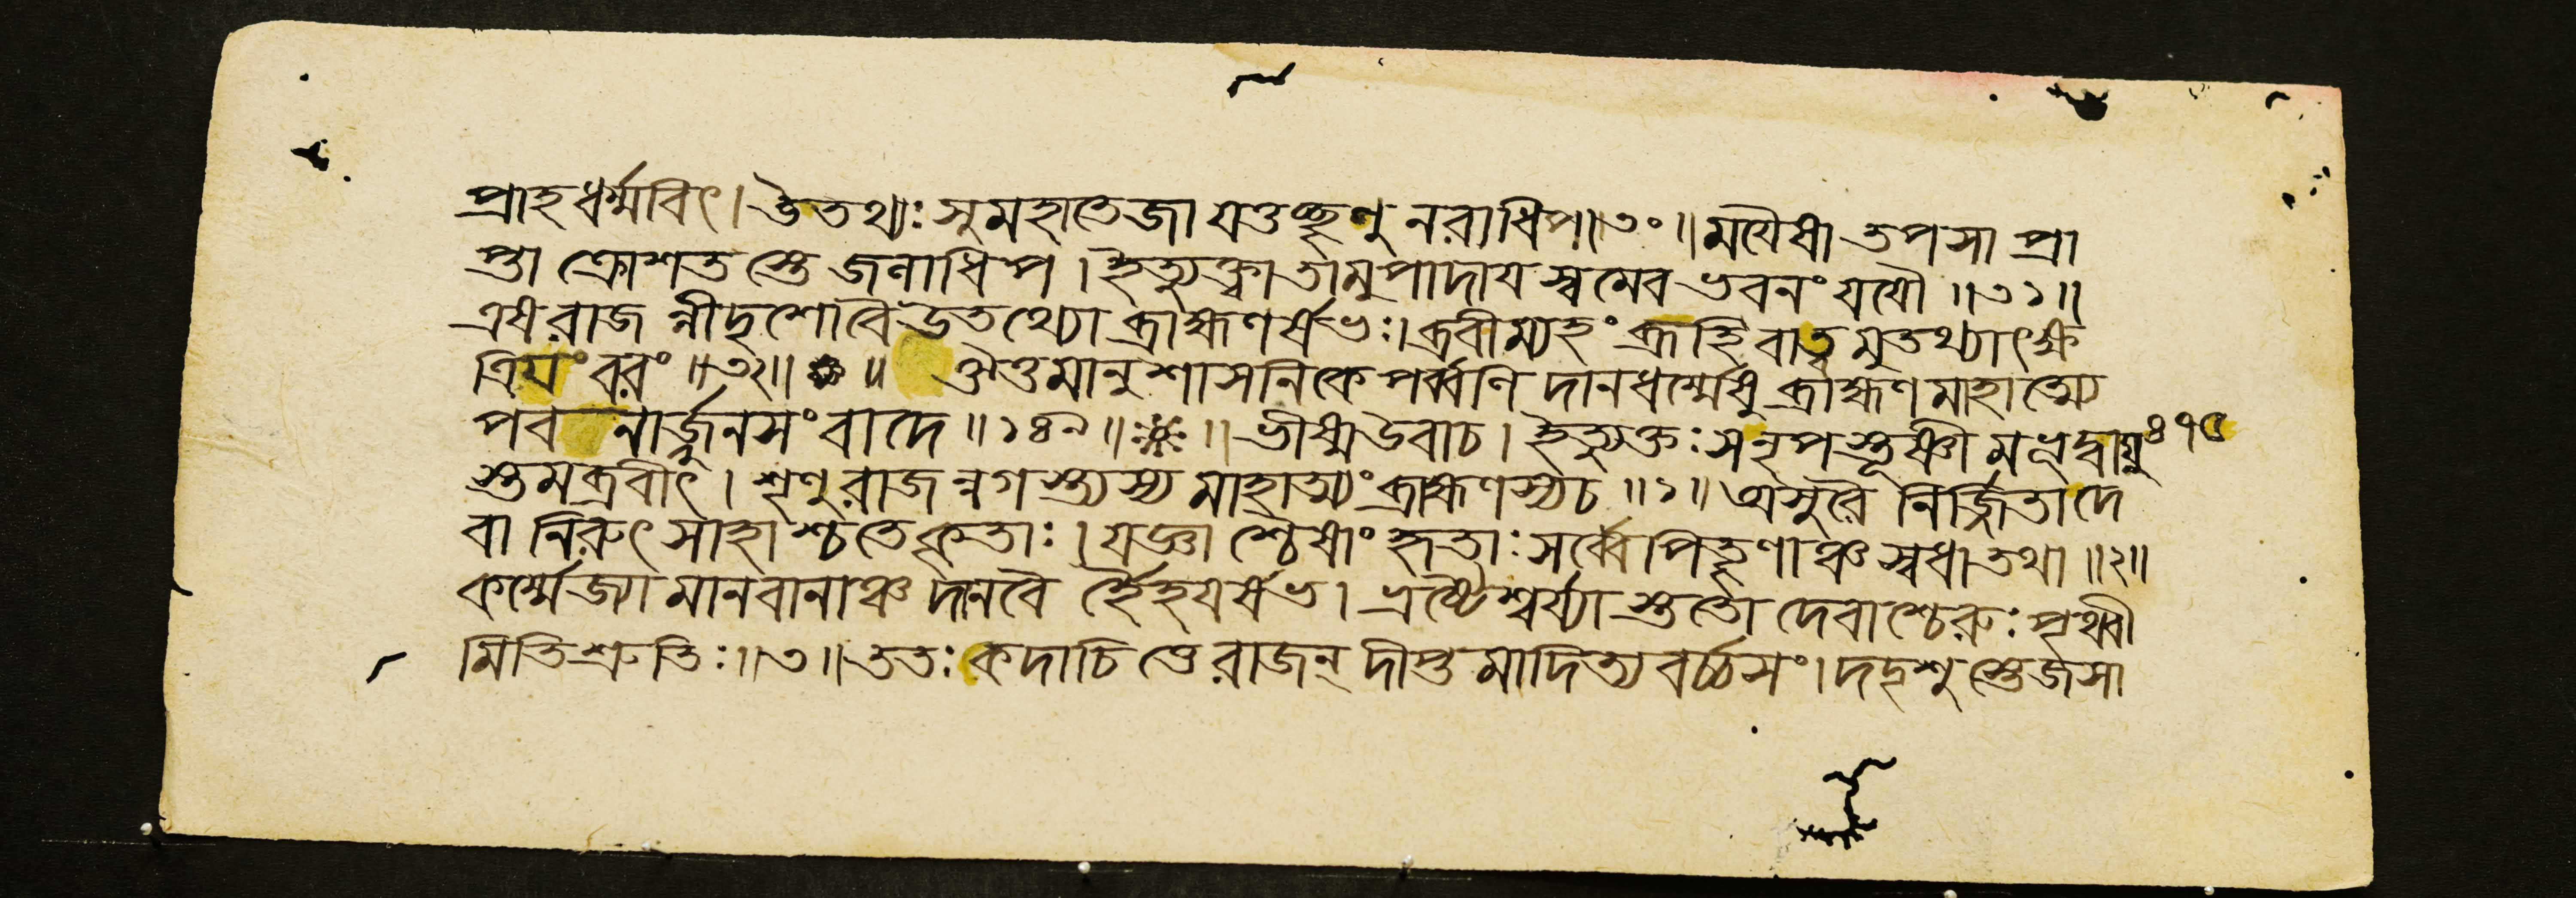 প্রাহ ধর্ম্মবিৎ। উতথ্যঃ সুমহাতেজা যত্তচ্ছৃণু নরাধিপ॥৩০॥ ময়ৈষা তপসা প্রা
প্তা ক্রোশতস্তে জনাধিপ। ইত্যুক্ত্বা তামুপাদায স্বমেব ভবনং যযৌ॥৩১॥
এষ রাজন্নীদৃশো বৈ উতথ্যো ব্রাহ্মণর্ষভঃ। ব্রবীম্যহং ব্রূহি বা ত্বমুতথ্যাৎ ক্ষ
ত্রিযং বরং॥৩২॥ ॥ ঔত্তমানুশাসনিকে পর্ব্বণি দানধর্ম্মেষু ব্রাহ্মণমাহাত্ম্যে
পবনার্জ্জুনসংবাদে॥১৪৯॥ ॥ ভীষ্ম উবাচ। ইত্যুক্তঃ স নৃপস্তূষ্ণীমভূদ্বাযু ৪৭৫
স্তমব্রবীৎ। শৃণু রাজন্নগস্ত্যস্য মাহাত্ম্যং ব্রাহ্মণস্য চ॥১॥ অসুরৈ নির্জ্জিতা দে
বা নিরুৎসাহাশ্চ তে কৃতাঃ। যজ্ঞাশ্চৈষাং হৃতাঃ সর্ব্বে পিতৄণাঞ্চ স্বধা তথা॥২॥
কর্ম্মেজ্যা মানবানাঞ্চ দানবৈ র্হৈহযর্ষভ। ভ্রষ্টৈশ্বর্য্যাস্ততো দেবাশ্চেরুঃ পৃথ্বী
মিতি শ্রুতিঃ॥৩॥ ততঃ কদাচিত্তে রাজন্ দীপ্তমাদিত্যবর্চ্চসং। দদৃশুস্তেজসা